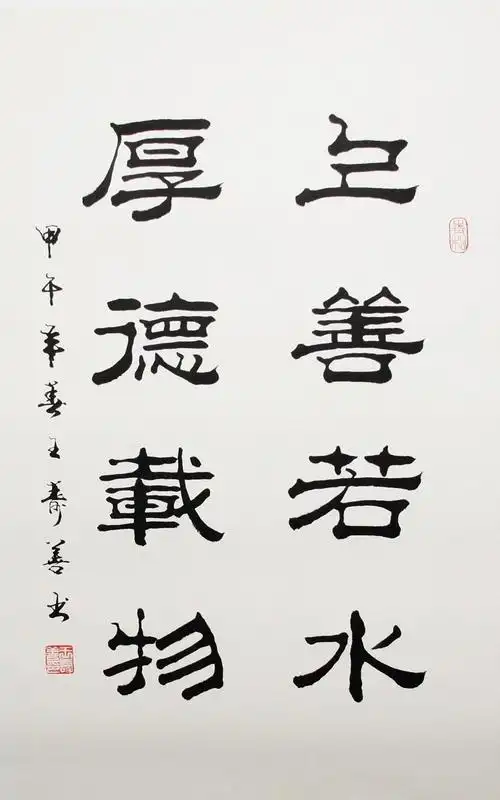 上善若水
厚德載物
甲午年春王寿善书